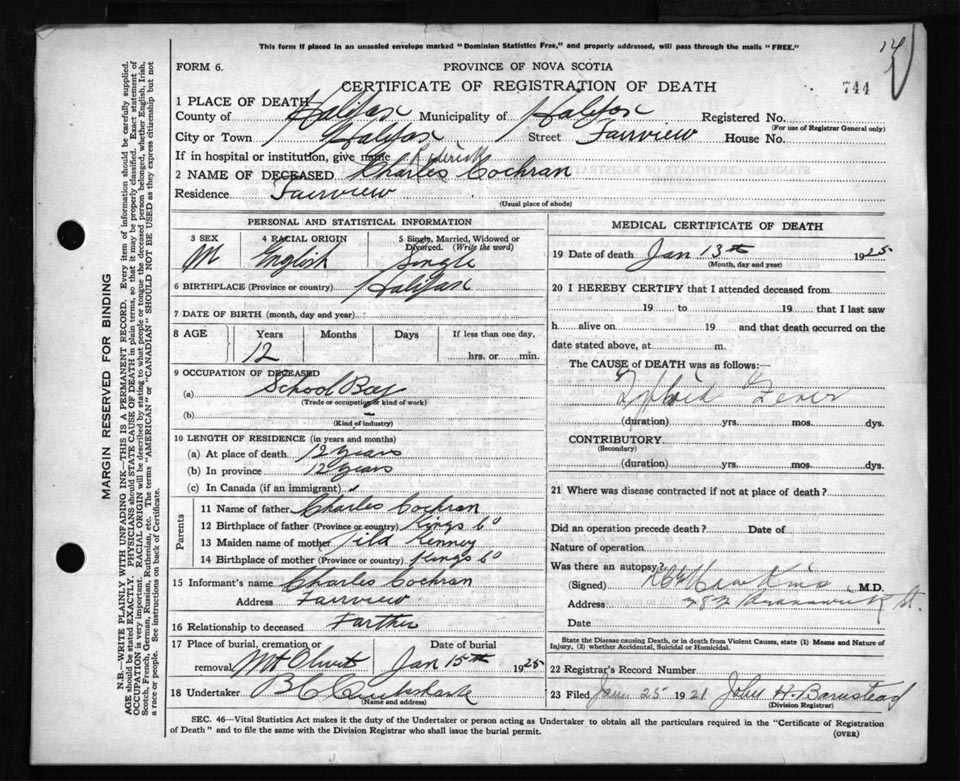 This form if placed in an unsealed envelope marked "Dominion Statistics Free," and properly addressed, will pass through the mails "FREE."
FORM 6.
PROVINCE OF NOVA SCOTIA
CERTIFICATE OF REGISTRATION OF DEATH
744
1 PLACE OF DEATH
County of Halifax Municipality of Halifax Registered No.
(For use of Registrar General only)
City or Town Halifax Street Fairview House No.
If in hospital or institution, give name
2 NAME OF DECEASED Charles Cochran
Residence Fairview
(Usual place of abode)
PERSONAL AND STATISTICAL INFORMATION
3 SEX 4 RACIAL ORIGIN 5 Single, Married, Widowed or Divorced. (Write the word)
M English Single
6 BIRTHPLACE (Province or country) Halifax
7 DATE OF BIRTH (month, day and year)
8 AGE Years Months Days If less than one day,
12 hrs. or min.
9 OCCUPATION OF DECEASED
(a) School Boy
(Trade or occupation or kind of work)
(b)
(Kind of industry)
10 LENGTH OF RESIDENCE (in years and months)
(a) At place of death 12 years
(b) In province 12 years
(c) In Canada (if an immigrant)
Parents
11 Name of father Charles Cochran
12 Birthplace of father (Province or country) Kings Co
13 Maiden name of mother Tild Kenney
14 Birthplace of mother (Province or country) Kings Co
15 Informant's name Charles Cochran
Address Fairview
16 Relationship to deceased Farther
17 Place of burial, cremation or removal Mt Olivet Date of burial Jan 15th 1925
18 Undertaker B C Cruikshank
(Name and address)
MEDICAL CERTIFICATE OF DEATH
19 Date of death Jan 13th 1925
(Month, day and year)
20 I HEREBY CERTIFY that I attended deceased from
19 to 19 that I last saw
h alive on 19 and that death occurred on the
date stated above, at m.
The CAUSE of DEATH was as follows:—
Typhoid Fever
(duration) yrs. mos. dys.
CONTRIBUTORY
(Secondary)
(duration) yrs. mos. dys.
21 Where was disease contracted if not at place of death?
Did an operation precede death? Date of
Nature of operation
Was there an autopsy?
(Signed) M.D.
Address Brunswick St.
Date
State the Disease causing Death, or in death from Violent Causes, state (1) Means and Nature of Injury, (2) whether Accidental, Suicidal or Homicidal.
22 Registrar's Record Number
23 Filed Jan 25 1921 John H. Barnstead
(Division Registrar)
SEC. 46—Vital Statistics Act makes it the duty of the Undertaker or person acting as Undertaker to obtain all the particulars required in the "Certificate of Registration
of Death" and to file the same with the Division Registrar who shall issue the burial permit.
(OVER)
MARGIN RESERVED FOR BINDING
N.B.—WRITE PLAINLY WITH UNFADING INK—THIS IS A PERMANENT RECORD. Every item of information should be carefully supplied.
AGE should be stated EXACTLY. PHYSICIANS should STATE CAUSE OF DEATH in plain terms, so that it may be properly classified. Exact statement of
OCCUPATION is very important. RACIAL ORIGIN will be described by stating to what people or tongue the deceased person belonged, whether English, Irish,
Scotch, French, German, Russian, Ruthenian, etc. The terms "AMERICAN" or "CANADIAN" SHOULD NOT BE USED as they express citizenship but not
a race or people. See instructions on back of Certificate.